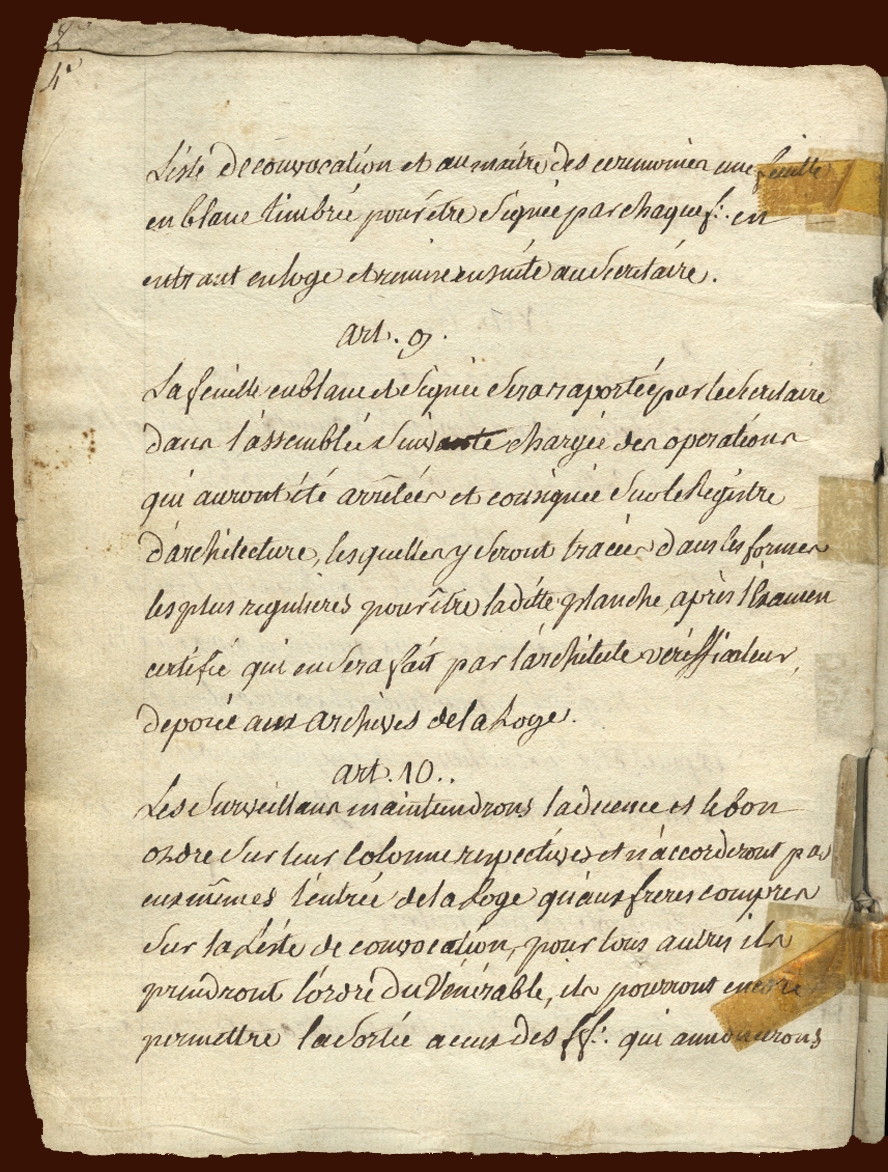 4e
Liste de convocation et au maitre des ceremonies une feuille
en blanc timbrée pour être signée par chaque f∴ en
entrant en loge et remise ensuite au Secretaire.
art. 9.
La feuille en blanc et signée sera raportée par le Secretaire
dans l'assemblée suivante chargée des operations
qui auront été arrêtées et consignée sur le Registre
d'architecture, lesquelles y seront tracées dans les formes
les plus regulieres pour être laditte planche, après l'Examen
certifié qui en sera fait par l'architecte vériffiateur,
deposée aux archives de la Loge.
art. 10..
Les Surveillans maintiendrons la decence et le bon
ordre sur leur Colonne respectives et n'accorderont pas
eux mêmes l'entrée de la Loge qu'aux freres compres
sur la Liste de convocation, pour tous autres ils
prendront l'ordre du Vénérable, ils pourront encore
permettre la Sortie a ceux des ff∴ qui annoncerons